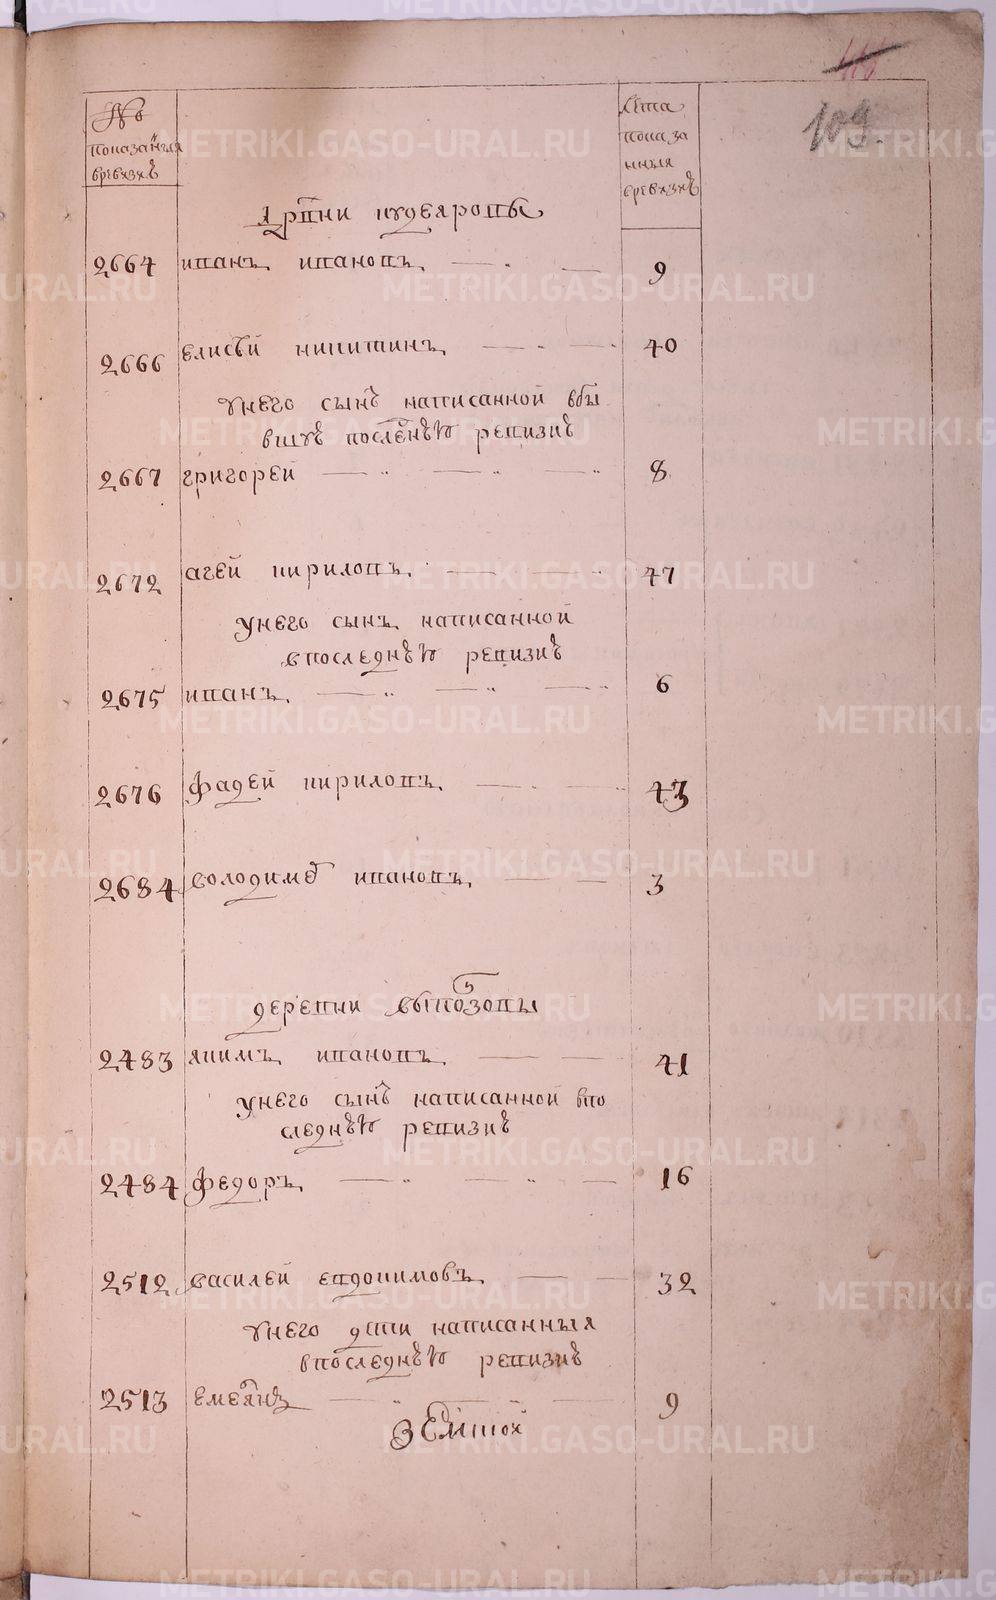 116
109.
№
показанныя
вревизиѣ
Лета
показа
нныя
вревизиѣ
дрвни кудеяровы
2664 иванъ ивановъ 9
2666 елисѣй никитинъ 40
унего сынъ написанной вбы
вшуѣ последнѣю ревизиѣ
2667 григорей 8
2672 агей кириловъ 47
унего сынъ написанной
впоследнѣю ревизиѣ
2675 иванъ 6
2676 фадей кириловъ 43
2684 володимеръ ивановъ 3
деревни
2483 якимъ ивановъ 41
унего сынъ написанной впо
следнѣю ревизиѣ
2484 федоръ 16
2512 василей евдокимовъ 32
унего дети написанныя
впоследнѣю ревизиѣ
2513 емелянъ 9
Земской
METRIKI.GASO-URAL.RU